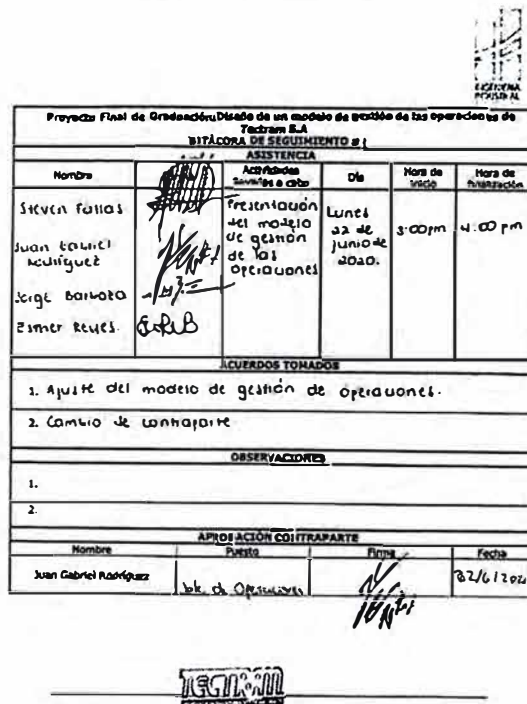 INGENIERIA
INDUSTRIAL
Proyecto Final de Graduación: Diseño de un modelo de gestión de las operaciones de
Tectram S.A
BITÁCORA DE SEGUIMIENTO #1
ASISTENCIA
Nombre
Actividades
llevadas a cabo
Día
Hora de
inicio
Hora de
finalización
Steven Fallas
Juan Gabriel
Rodríguez
Jorge Barboza
Esmer Reyes.
Presentación
del modelo
de gestión
de las
operaciones
Lunes
22 de
junio de
2020.
3:00pm
4:00 pm
ACUERDOS TOMADOS
1. Ajuste del modelo de gestión de operaciones.
2. Cambio de contraparte
OBSERVACIONES
1.
2.
APROBACIÓN CONTRAPARTE
Nombre
Puesto
Firma
Fecha
Juan Gabriel Rodríguez
de Operaciones
TECTRAM